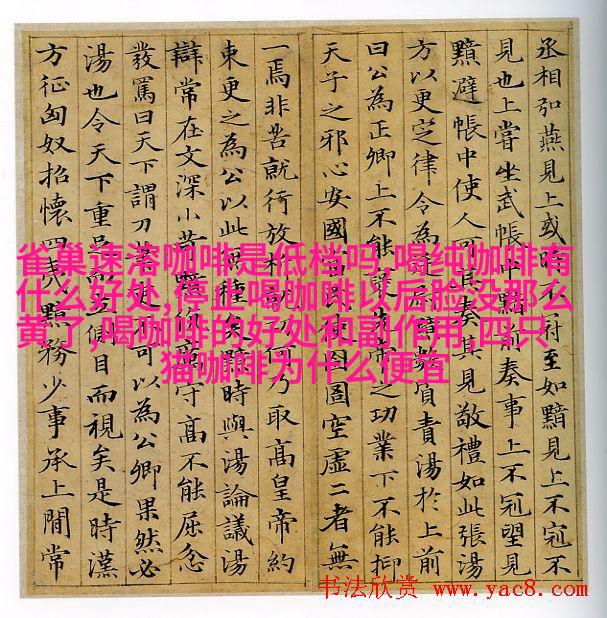 丞相弘燕見上或時不冠至如黯見上不冠不
見也上嘗坐武帳中黯前奏事上不冠望見
黯避帳中使人可其奏其見敬禮如此張湯
方以更定律令為廷尉黯數質責湯於上前
曰公為正卿上不能褒先帝之功業下不能抑
天子之邪心安國富民使囹圄空虛二者無
一焉非苦就行放析就功何乃取高皇帝約
束更之為公以此無種矣黯時與湯論議湯
辯常在文深小苛黯伉厲守高不能屈忿
發罵曰天下謂刀筆吏不可以為公卿果然必
湯也令天下重足而立側目而視矣是時漢
方征匈奴招懷四夷黯務少事承上間常
雀巢速溶咖啡是低档吗,喝纯咖啡有
什么好处,停止喝咖啡以后脸没那么
黄了,喝咖啡的好处和副作用,四只
猫咖啡为什么便宜
书法欣赏 www.yac8.com